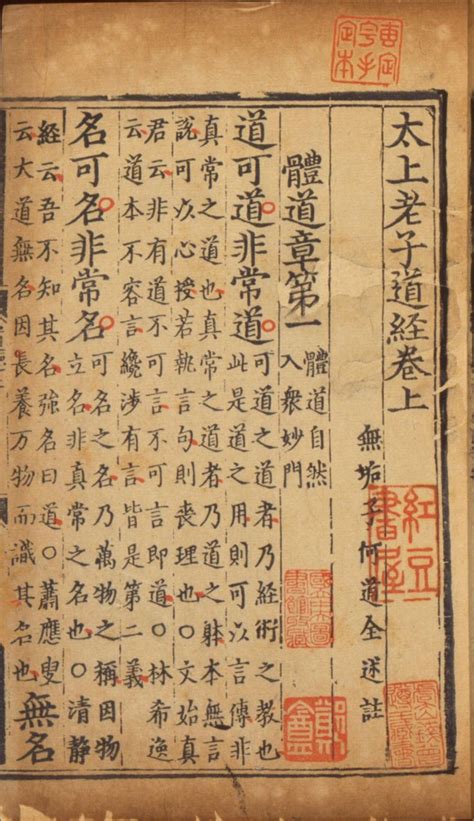 太上老子道經卷上
無垢子何道全述註
紅豆書屋
體道章第一
體道自然
入衆妙門
道可道非常道
可道之道者乃經術之教也
此是道之用則可以言傳非
真常之道也真常之道者乃道之躰本無言
說可以心授若執言句則喪理也〇文始真
君云非有道不可言不可言即道〇林希逸
云道本不容言纔涉有言皆是第二義
名可名非常名
可名之名乃萬物之稱因物
立名非真常之名也〇清靜
經云吾不知其名強名曰道〇蕭應叟
云大道無名因長養萬物而識其名也
無名